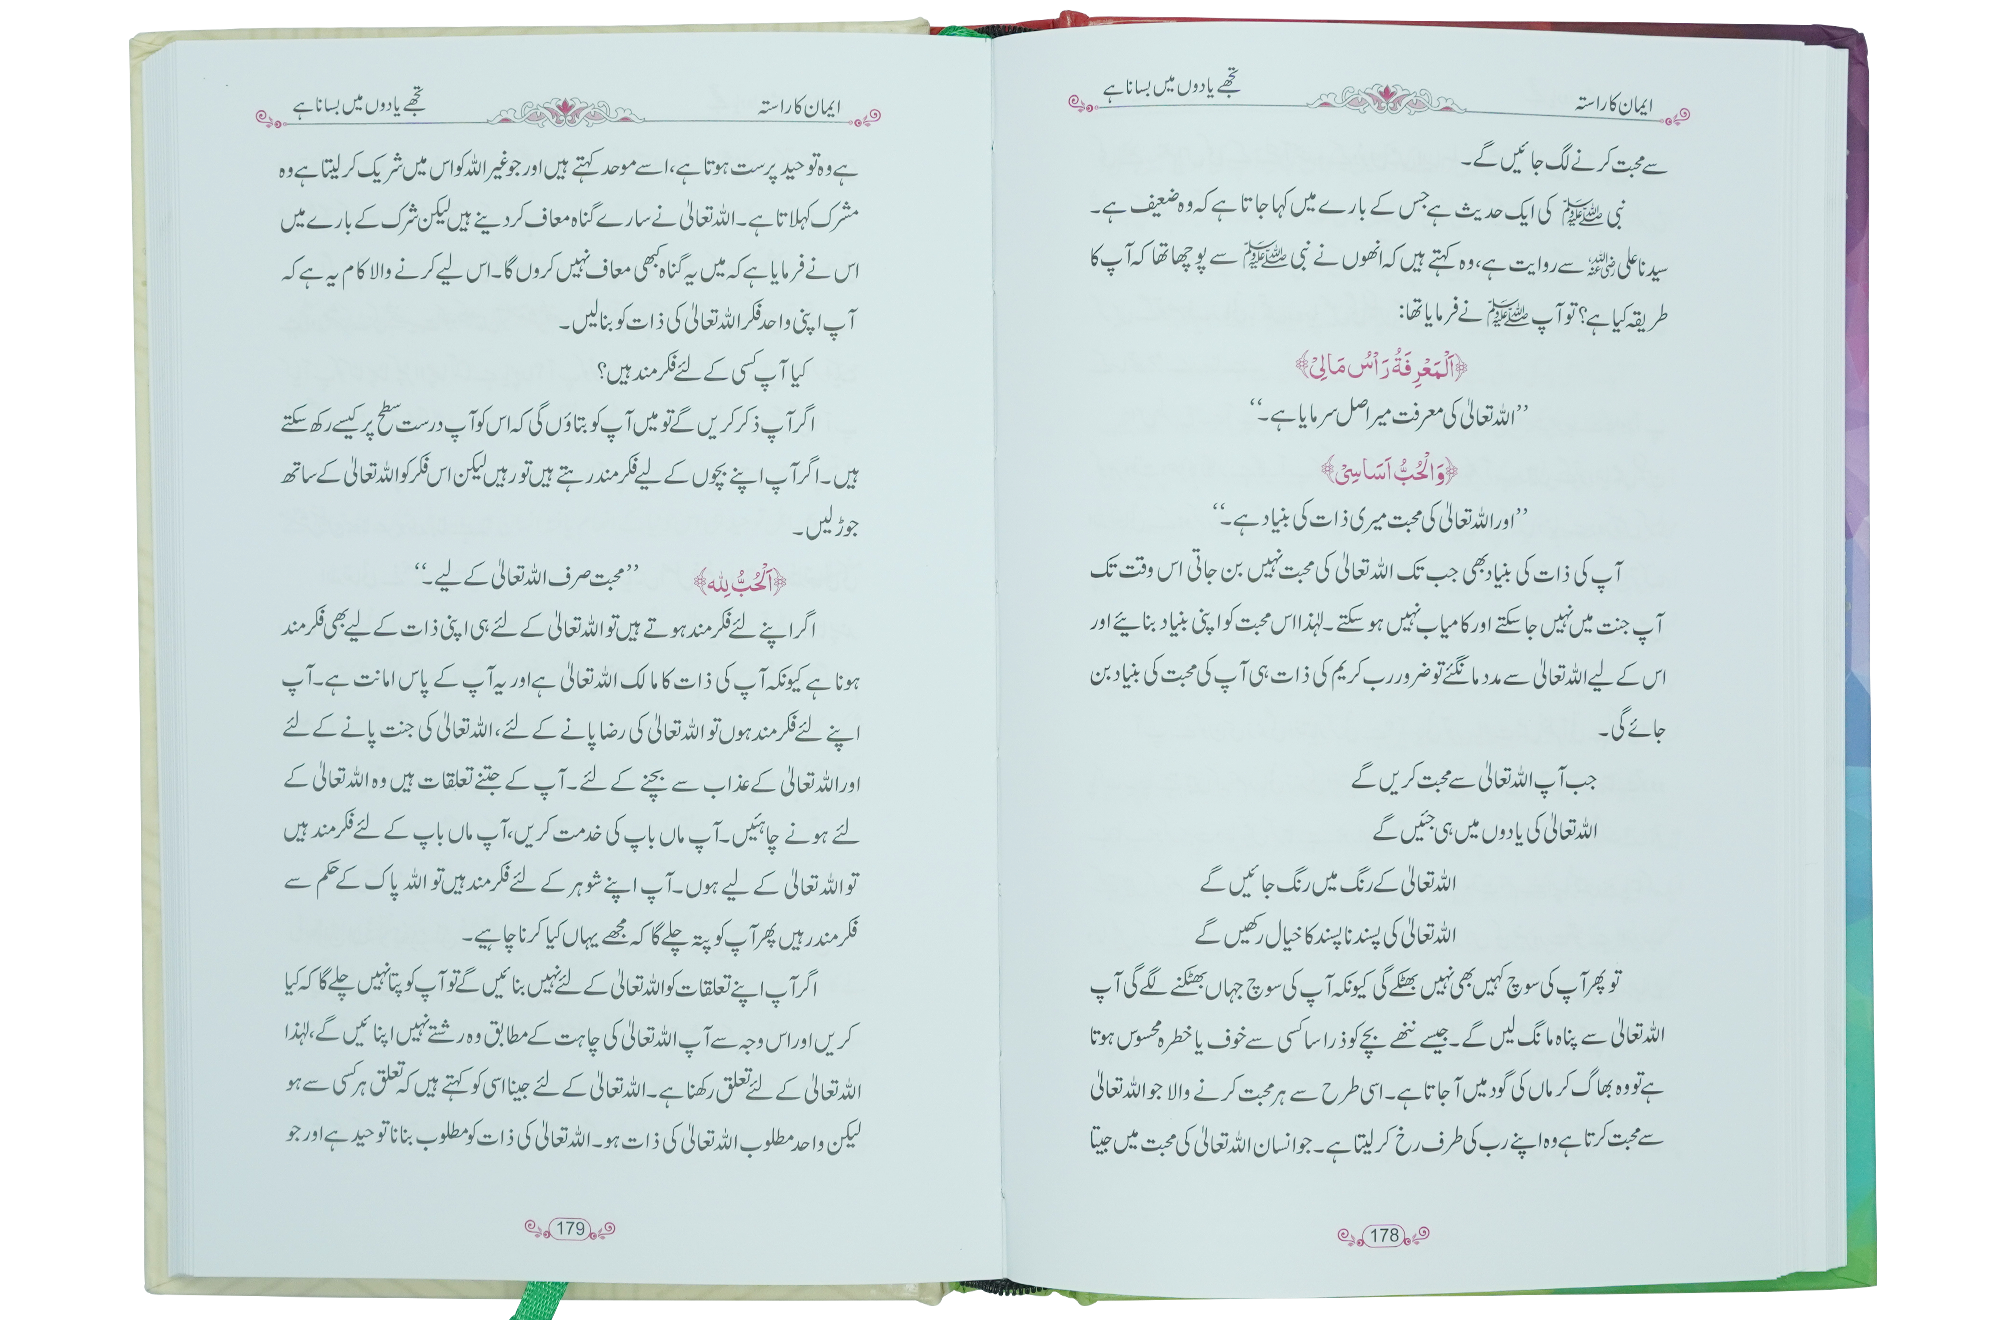 ایمان کا راستہ
تجھے یادوں میں بسانا ہے
سے محبت کرنے لگ جائیں گے۔
نبی ﷺ کی ایک حدیث ہے جس کے بارے میں کہا جاتا ہے کہ وہ ضعیف ہے۔
سیدنا علی رضی اللہ عنہ سے روایت ہے، وہ کہتے ہیں کہ انھوں نے نبی ﷺ سے پوچھا تھا کہ آپ کا
طریقہ کیا ہے؟ تو آپ ﷺ نے فرمایا تھا:
﴿اَلْمَعْرِفَةُ رَاْسُ مَالِیْ﴾
’’اللہ تعالیٰ کی معرفت میرا اصل سرمایا ہے۔‘‘
﴿وَالْحُبُّ اَسَاسِیْ﴾
’’اور اللہ تعالیٰ کی محبت میری ذات کی بنیاد ہے۔‘‘
آپ کی ذات کی بنیاد بھی جب تک اللہ تعالیٰ کی محبت نہیں بن جاتی اس وقت تک
آپ جنت میں نہیں جا سکتے اور کامیاب نہیں ہو سکتے۔ لہٰذا اس محبت کو اپنی بنیاد بنایئے اور
اس کے لیے اللہ تعالیٰ سے مدد مانگئے تو ضرور رب کریم کی ذات ہی آپ کی محبت کی بنیاد بن
جائے گی۔
جب آپ اللہ تعالیٰ سے محبت کریں گے
اللہ تعالیٰ کی یادوں میں ہی جئیں گے
اللہ تعالیٰ کے رنگ میں رنگ جائیں گے
اللہ تعالیٰ کی پسند ناپسند کا خیال رکھیں گے
تو پھر آپ کی سوچ کہیں بھی نہیں بھٹکے گی کیونکہ آپ کی سوچ جہاں بھٹکنے لگے گی آپ
اللہ تعالیٰ سے پناہ مانگ لیں گے۔ جیسے ننھے بچے کو ذرا سا کسی سے خوف یا خطرہ محسوس ہوتا
ہے تو وہ بھاگ کر ماں کی گود میں آ جاتا ہے۔ اسی طرح سے ہر محبت کرنے والا جو اللہ تعالیٰ
سے محبت کرتا ہے وہ اپنے رب کی طرف رخ کر لیتا ہے۔ جو انسان اللہ تعالیٰ کی محبت میں جیتا
178
ایمان کا راستہ
تجھے یادوں میں بسانا ہے
ہے وہ توحید پرست ہوتا ہے، اسے موحد کہتے ہیں اور جو غیر اللہ کو اس میں شریک کر لیتا ہے وہ
مشرک کہلاتا ہے۔ اللہ تعالیٰ نے سارے گناہ معاف کر دینے ہیں لیکن شرک کے بارے میں
اس نے فرمایا ہے کہ میں یہ گناہ کبھی معاف نہیں کروں گا۔ اس لیے کرنے والا کام یہ ہے کہ
آپ اپنی واحد فکر اللہ تعالیٰ کی ذات کو بنا لیں۔
کیا آپ کسی کے لئے فکرمند ہیں؟
اگر آپ ذکر کریں گے تو میں آپ کو بتاؤں گی کہ اس کو آپ درست سطح پر کیسے رکھ سکتے
ہیں۔ اگر آپ اپنے بچوں کے لیے فکرمند رہتے ہیں تو رہیں لیکن اس فکر کو اللہ تعالیٰ کے ساتھ
جوڑ لیں۔
﴿اَلْحُبُّ لِله﴾ ’’محبت صرف اللہ تعالیٰ کے لیے۔‘‘
اگر اپنے لئے فکرمند ہوتے ہیں تو اللہ تعالیٰ کے لئے ہی اپنی ذات کے لیے بھی فکرمند
ہونا ہے کیونکہ آپ کی ذات کا مالک اللہ تعالیٰ ہے اور یہ آپ کے پاس امانت ہے۔ آپ
اپنے لئے فکرمند ہوں تو اللہ تعالیٰ کی رضا پانے کے لئے، اللہ تعالیٰ کی جنت پانے کے لئے
اور اللہ تعالیٰ کے عذاب سے بچنے کے لئے۔ آپ کے جتنے تعلقات ہیں وہ اللہ تعالیٰ کے
لئے ہونے چاہئیں۔ آپ ماں باپ کی خدمت کریں، آپ ماں باپ کے لئے فکرمند ہیں
تو اللہ تعالیٰ کے لیے ہوں۔ آپ اپنے شوہر کے لئے فکرمند ہیں تو اللہ پاک کے حکم سے
فکرمند رہیں پھر آپ کو پتہ چلے گا کہ مجھے یہاں کیا کرنا چاہیے۔
اگر آپ اپنے تعلقات کو اللہ تعالیٰ کے لئے نہیں بنائیں گے تو آپ کو پتا نہیں چلے گا کہ کیا
کریں اور اس وجہ سے آپ اللہ تعالیٰ کی چاہت کے مطابق وہ رشتے نہیں اپنائیں گے، لہٰذا
اللہ تعالیٰ کے لئے تعلق رکھنا ہے۔ اللہ تعالیٰ کے لئے جینا اسی کو کہتے ہیں کہ تعلق ہر کسی سے ہو
لیکن واحد مطلوب اللہ تعالیٰ کی ذات ہو۔ اللہ تعالیٰ کی ذات کو مطلوب بنانا توحید ہے اور جو
179